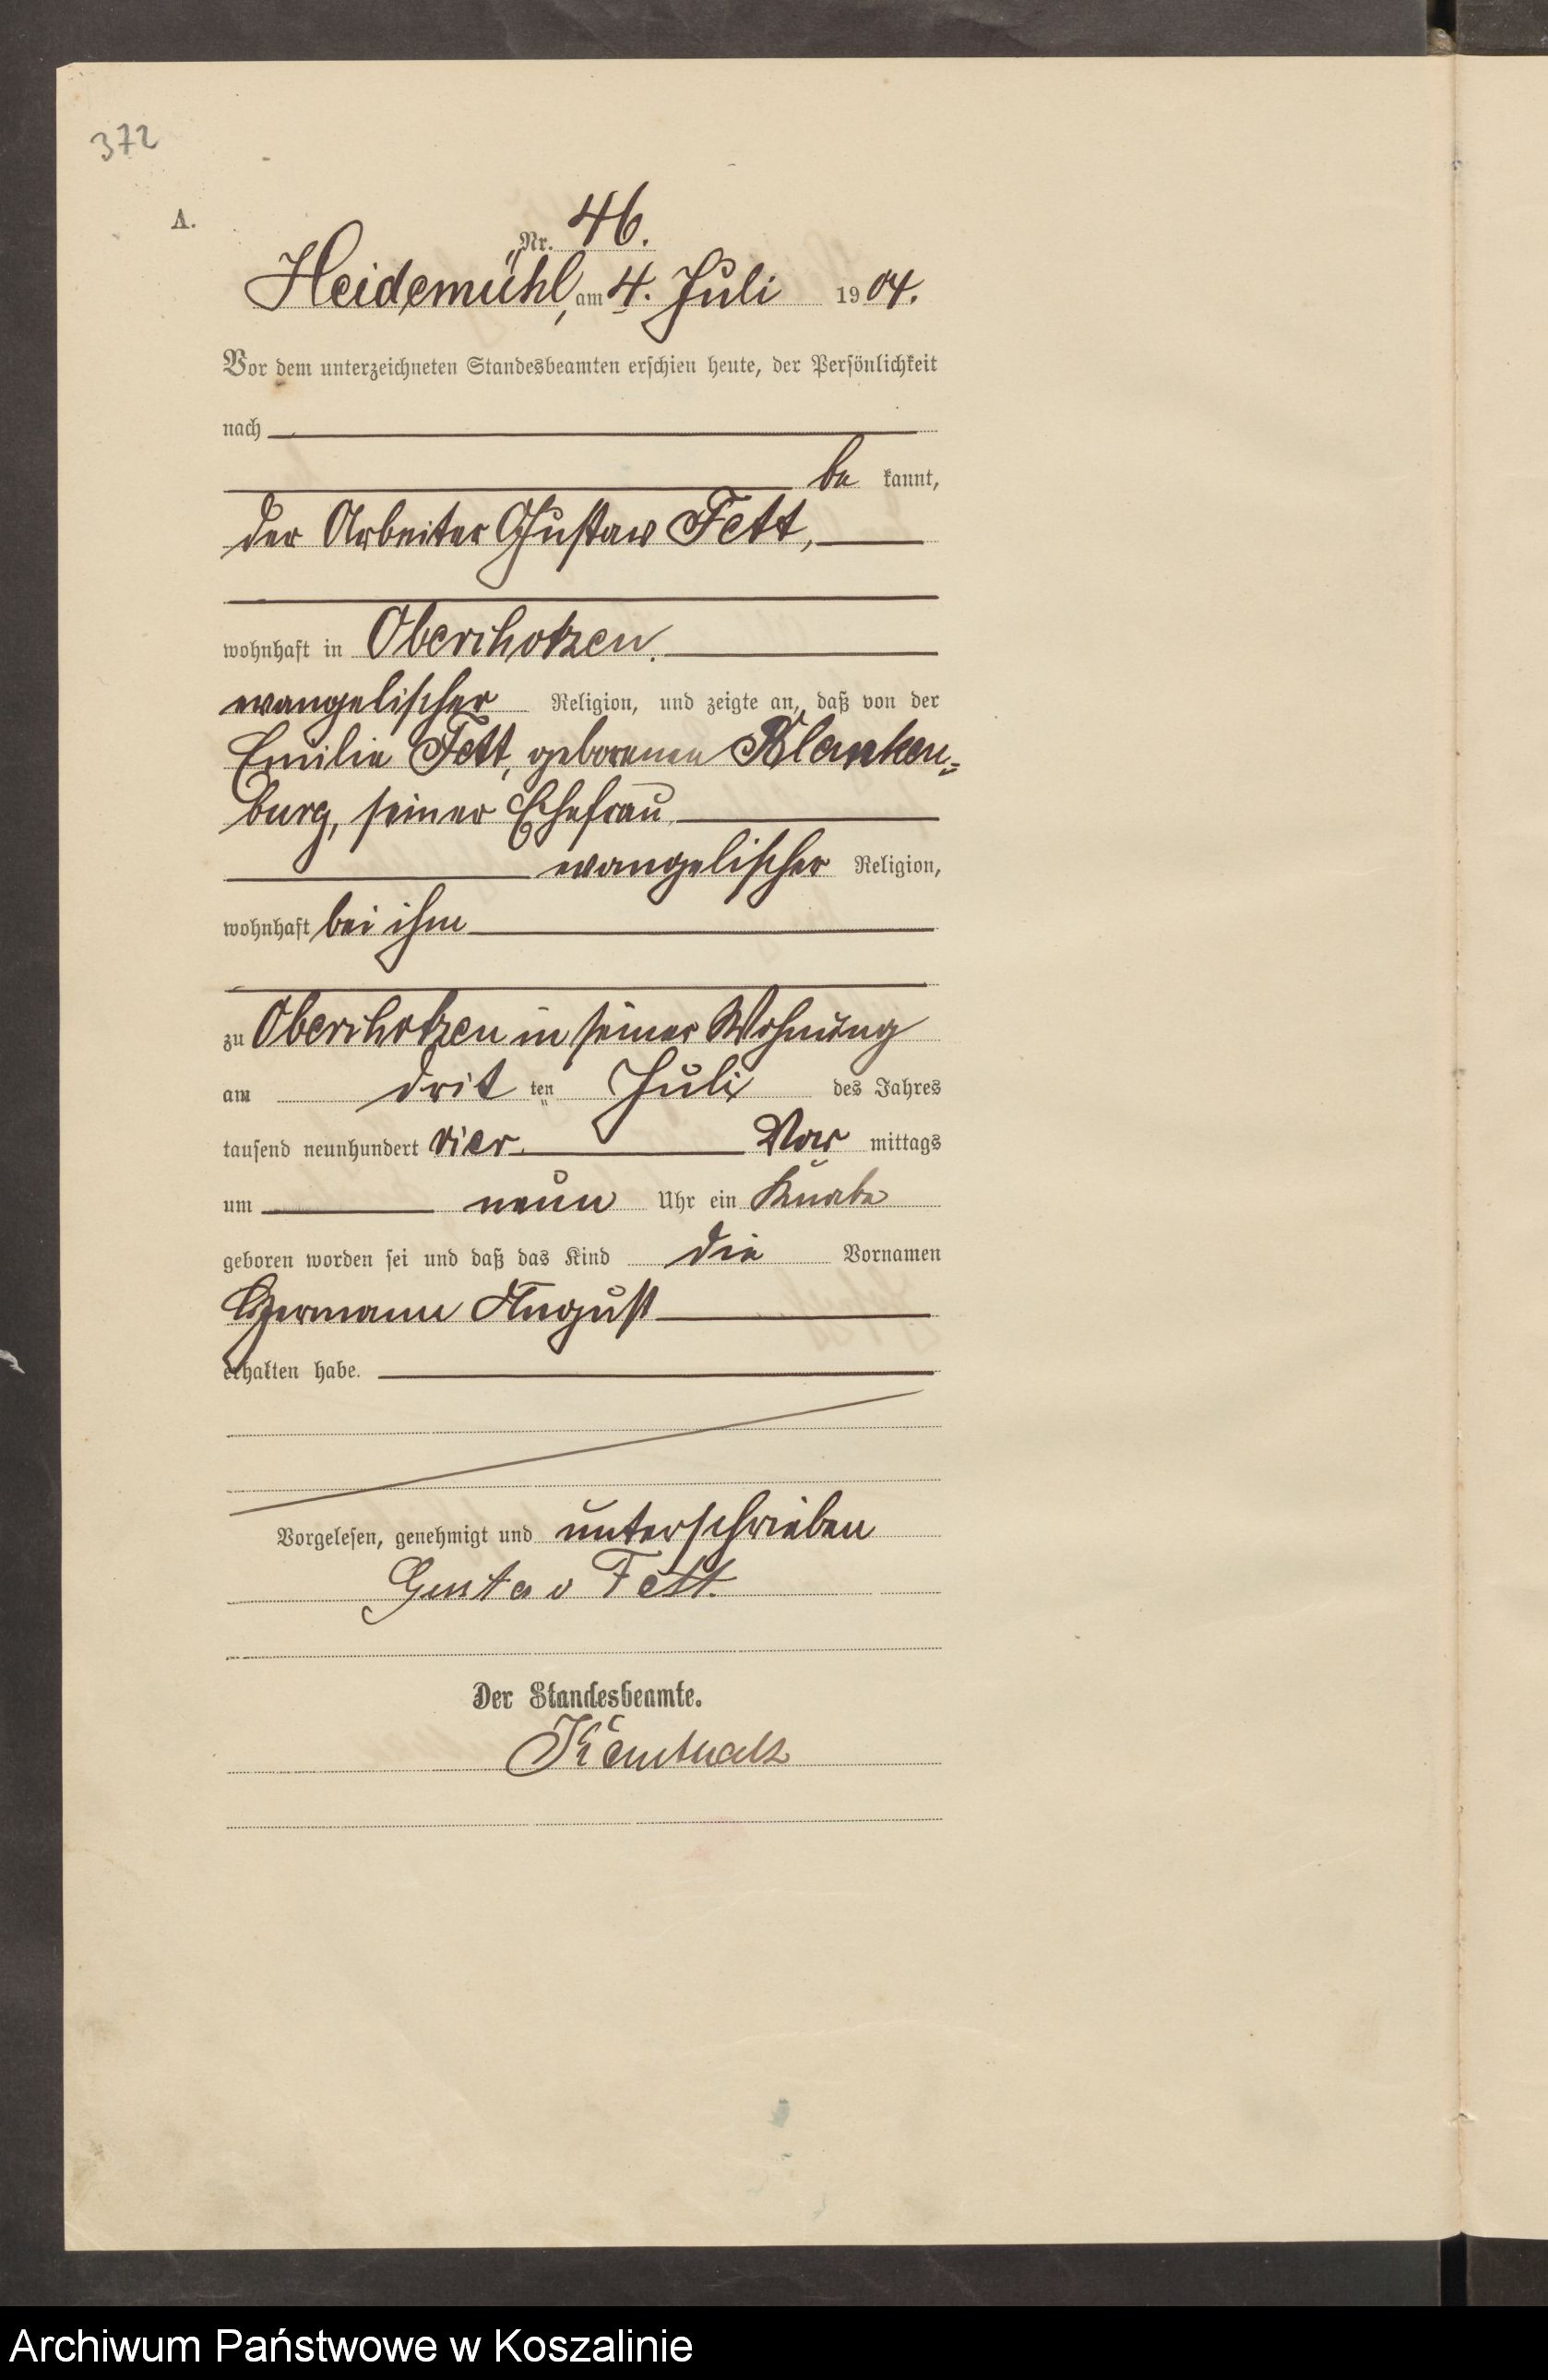 372
A.
Nr. 46.
Heidemühl, am 4. Juli 1904.
Vor dem unterzeichneten Standesbeamten erschien heute, der Persönlichkeit
nach
be kannt,
der Arbeiter Gustav Fett,
wohnhaft in Oberihotzen.
evangelischer Religion, und zeigte an, daß von der
Emilie Fett, geborenen Blanken=
burg, seiner Ehefrau
evangelischer Religion,
wohnhaft bei ihm
zu Oberihotzen in seiner Wohnung
am drit ten Juli des Jahres
tausend neunhundert vier. Vor mittags
um neun Uhr ein Knabe
geboren worden sei und daß das Kind die Vornamen
Hermann August
erhalten habe.
Vorgelesen, genehmigt und unterschrieben
Gustav Fett.
Der Standesbeamte.
Archiwum Państwowe w Koszalinie